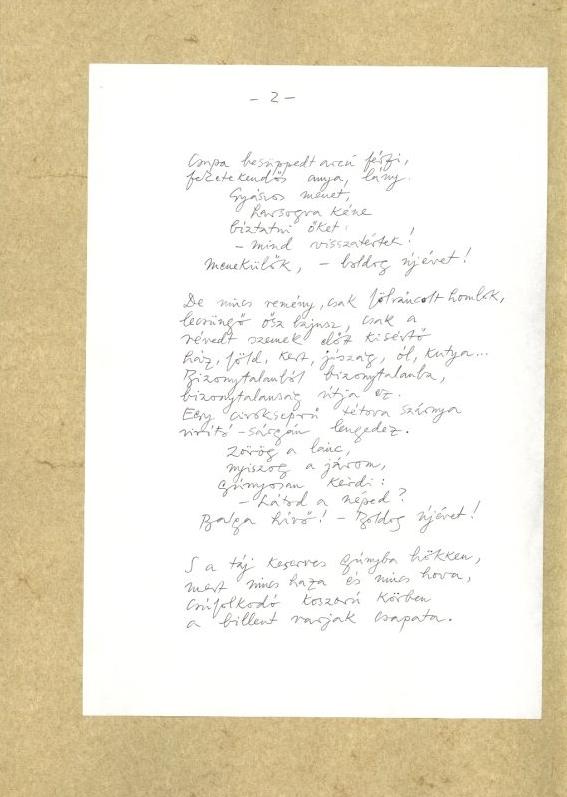 – 2 –
Csupa besüppedt arcú férfi,
feketekendős anya, lány.
Gyászos menet,
harsogva kéne
biztatni őket:
– mind visszatértek!
Menekülők, – boldog újévet!
De nincs remény, csak fölráncolt homlok,
lecsüngő ősz bajusz, csak a
révedt szemek előtt kisértő
ház, föld, kert, jószág, ól, kutya...
Bizonytalanból bizonytalanba,
bizonytalanság útja ez.
Egy cirokseprű tétova szárnya
virító-sárgán lengedez.
Zörög a lánc,
nyiszog a járom,
gúnyosan kérdi:
– Látod a néped?
Balga hívő! – Boldog újévet!
S a táj keserves gúnyba hökken,
mert nincs haza és nincs hova,
csúfolkodó koszorú körben
a billent varjak csapata.